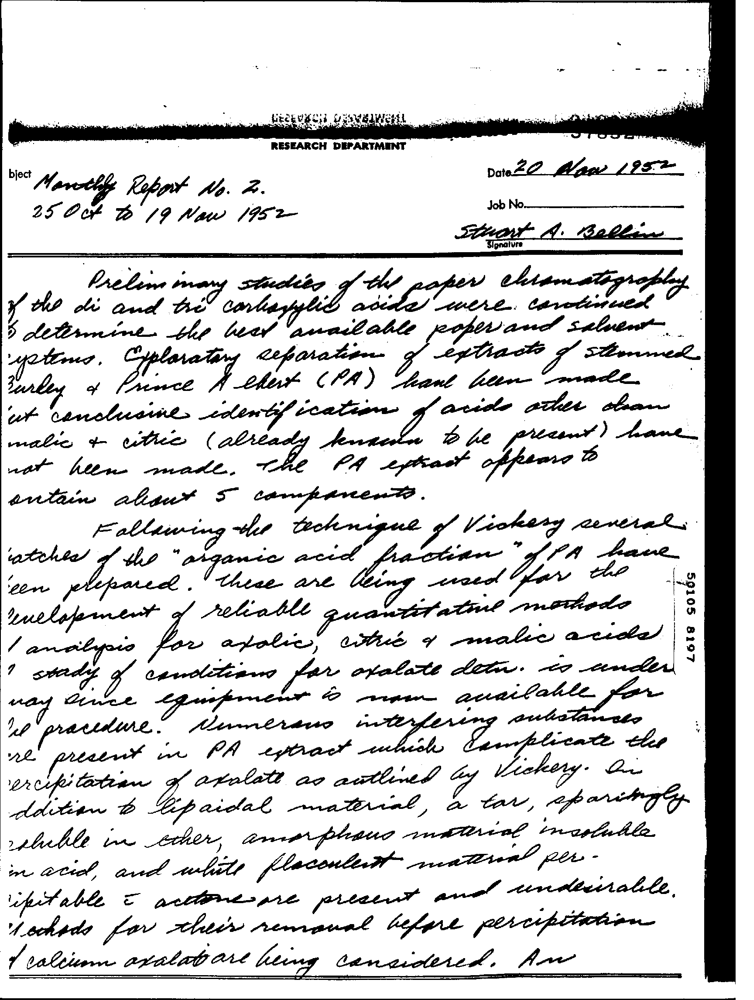 RESEARCH DEPARTMENT
RESEARCH DEPARTMENT
bject Monthly Report No. 2.
25 Oct to 19 Nov 1952
Date 20 Nov 1952
Job No.
Stuart A. Bellin
Signature
Preliminary studies of the paper chromatography
of the di and tri carboxylic acids were continued
determine the best available paper and solvent
ystems. Exploratory separation of extracts of stemmed
Burley & Prince Albert (PA) have been made
ut conclusive identification of acids other than
malic + citric (already known to be present) have
not been made. The PA extract appears to
ontain about 5 components.
Following the technique of Vickery several
atches of the "organic acid fraction" of PA have
een prepared. These are being used for the
evelopment of reliable quantitative methods
f analysis for oxalic, citric & malic acids
study of conditions for oxalate detn. is under
way since equipment is now available for
he procedure. Numerous interfering substances
re present in PA extract which complicate the
ercipitation of oxalate as outlined by Vickery. In
ddition to lipoidal material, a tar, sparingly
soluble in ether, amorphous material insoluble
in acid, and white flocculent material per-
ipitable c̄ acetone are present and undesirable.
ethods for their removal before percipitation
of calcium oxalate are being considered. An
50105 8197